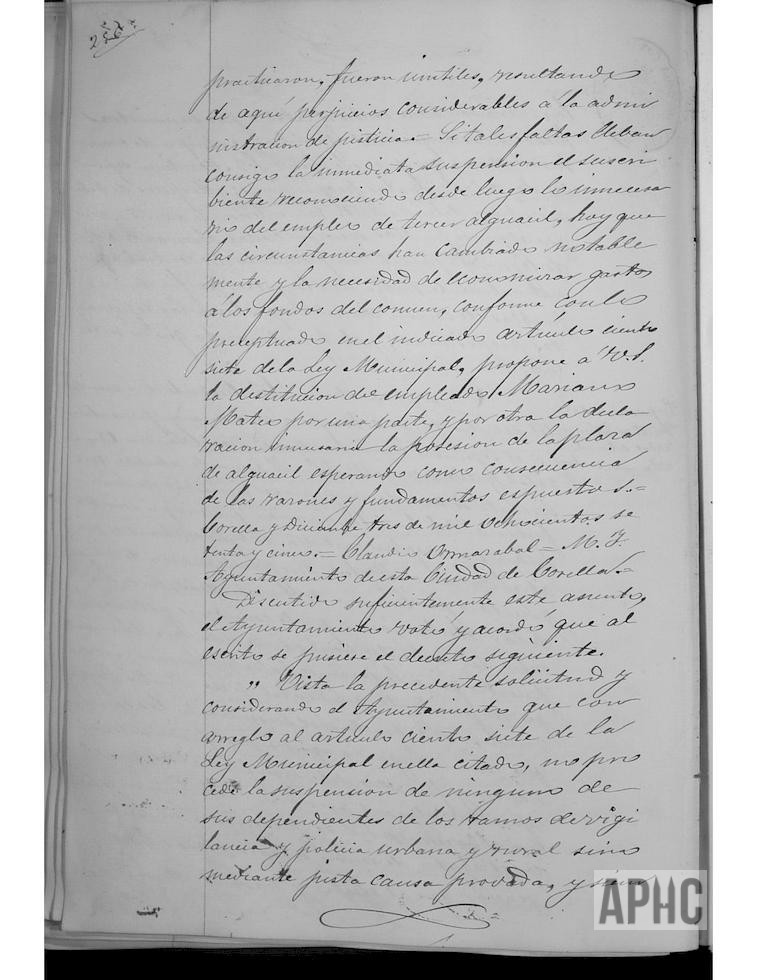 256
practicaron, fueron inutiles, resultando
de aquí perjuicios considerables á la admi
nistracion de justicia. = Si tales faltas llevan
consigo la inmediata suspension el suscri
biente reconociendo desde luego lo innecesa
rio del empleo de tercer alguacil, hoy que
las circunstancias han cambiado notable
mente y la necesidad de economizar gastos
á los fondos del comun, conforme con lo
preceptuado en el indicado artículo ciento
siete de la Ley Municipal, propone a V.S.
la destitucion del empleado Mariano
Mateo por una parte, y por otra la decla
racion innecesaria la posesion de la plaza
de alguacil esperando como consecuencia
de las razones y fundamentos espuestos. =
Corella y Diciembre tres de mil ochocientos se
tenta y cinco. = Claudio Ormazabal = M. I.
Ayuntamiento de esta Ciudad de Corella. =
Discutido suficientemente este asunto,
el Ayuntamiento votó y acordó que al
escrito se pusiere el decreto siguiente.
" Vista la precedente solicitud y
considerando el Ayuntamiento que con
arreglo al artículo ciento siete de la
Ley Municipal en ella citado, no pro
cede la suspension de ninguno de
sus dependientes de los ramos de vigi
lancia y policia urbana y rural sino
mediante justa causa provada, y
APHC